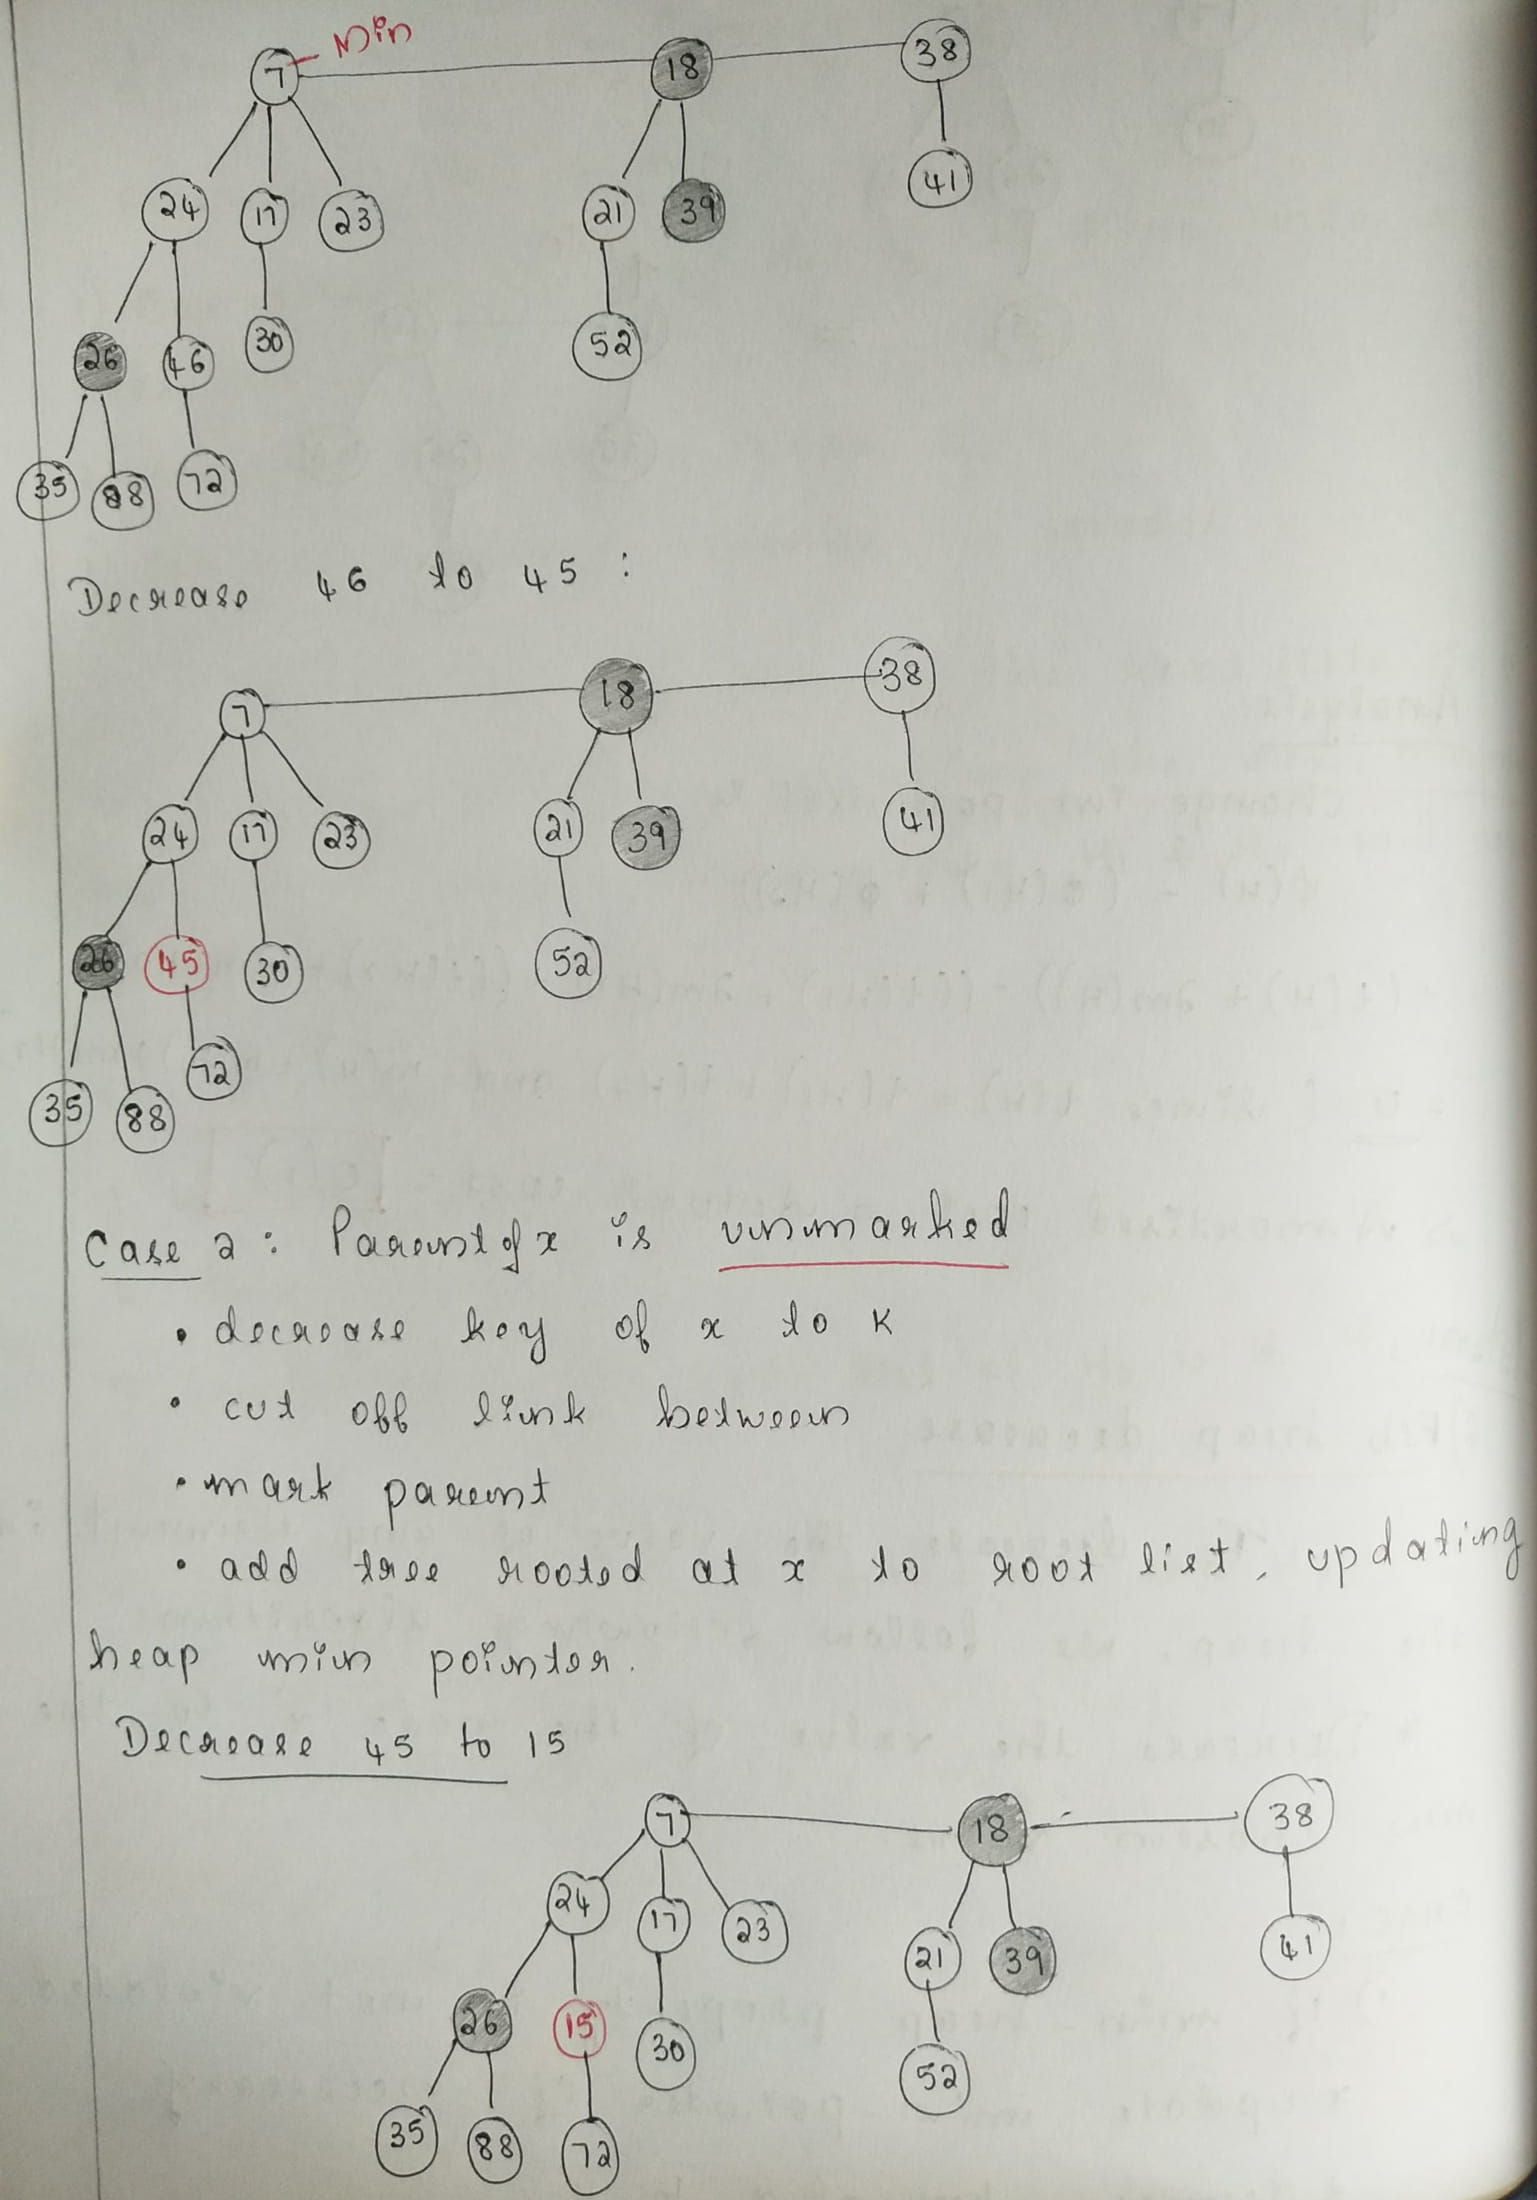 Min
7 18 38
24 17 23 21 39 41
26 46 30 52
35 88 72
Decrease 46 to 45 :
7 18 38
24 17 23 21 39 41
26 45 30 52
35 88 72
Case 2 : Parent of x is unmarked
• decrease key of x to K
• cut off link between
• mark parent
• add tree rooted at x to root list, updating
heap min pointer.
Decrease 45 to 15
7 18 38
24 17 23 21 39 41
26 15 30 52
35 88 72